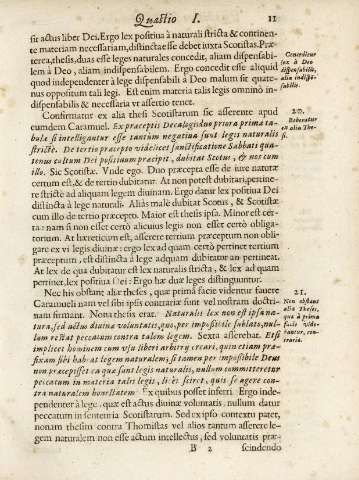 Quæstio I.
11
sit actus liber Dei. Ergo lex positiua à naturali stricta & continen-
te materiam necessariam, distinctae esse debet iuxta Scotistas. Præ-
terea, thesis, duas esse leges naturales concedit, aliam dispensabi-
lem à Deo, aliam indispensabilem. Ergo concedit esse aliquid
quod independenter à lege dispensabili à Deo malum sit quate-
nus oppositum tali legi. Est enim materia talis legis omninò in-
dispensabilis & necessaria vt assertio tenet.
Conceditur
lex à Deo
dispensabilis,
alia indispen-
sabilis.
Confirmatur ex alia thesi Scotistarum sic asserente apud
eumdem Caramuel. Ex præceptis Decalogi duo priora prima ta-
bulæ si intelligantur esse tantùm negatiua sunt legis naturalis
strictè. De tertio præcepto videlicet sanctificatione Sabbati qua-
tenus cultum Dei positiuum præcipit, dubitat Scotus, & nos cum
illo. Sic Scotistæ. Vnde ego. Duo præcepta esse de iure naturæ
certum est, & de tertio dubitatur. At non potest dubitari, pertine-
re strictè ad aliquam legem diuinam. Ergo datur lex positiua Dei
distincta à lege naturali. Aliàs malè dubitat Scotus, & Scotistæ
cum illo de tertio præcepto. Maior est thesis ipsa. Minor est cer-
ta: nam si non esset certò alicuius legis non esset certò obliga-
torium. At hæreticum est, asserere tertium præceptum non obli-
gare ex vi legis diuinæ: ergo lex ad quam certò pertinet tertium
præceptum, est distincta à lege ad quam dubitatur an pertineat.
At lex de qua dubitatur est lex naturali stricta, & lex ad quam
pertinet, lex positiua Dei: Ergo hæ duæ leges distinguuntur.
20.
Roboratur
ex alia The-
si.
Nec his obstant aliæ theses, quæ primâ facie videntur fauere
Caramueli nam vel sibi ipsis contrariæ sunt vel nostram doctri-
nam firmant. Nona thesis erat. Naturalis lex non est ipsa na-
tura, sed actus diuinæ voluntatis, quo, per impossibile sublato, nul-
lum restat peccatum contra talem legem. Sexta asserebat. Etsi
implicet hominem cum vsu liberi arbitry creari, quin etiam præ-
fixam sibi habeat legem naturalem, si tamen per impossibile Deus
non præcepisset ea quæ sunt legis naturalis, nullum committeretur
peccatum in materia talis legi, licèt sciret, quis se agere con-
tra naturalem honestatem. Ex quibus posset inferri. Ergo inde-
pendenter à lege, quæ est actus diuinæ voluntatis, nullum datur
peccatum in sententia Scotistarum. Sed ex ipso contextu patet,
nonam thesim contra Thomistas vel alios tantum asserere le-
gem naturalem non esse actum intellectus, sed voluntatis præ-
21.
Non obstant
aliæ Theses,
quæ à primâ
facie vide-
bantur, con-
trariæ.
B 2
scindendo